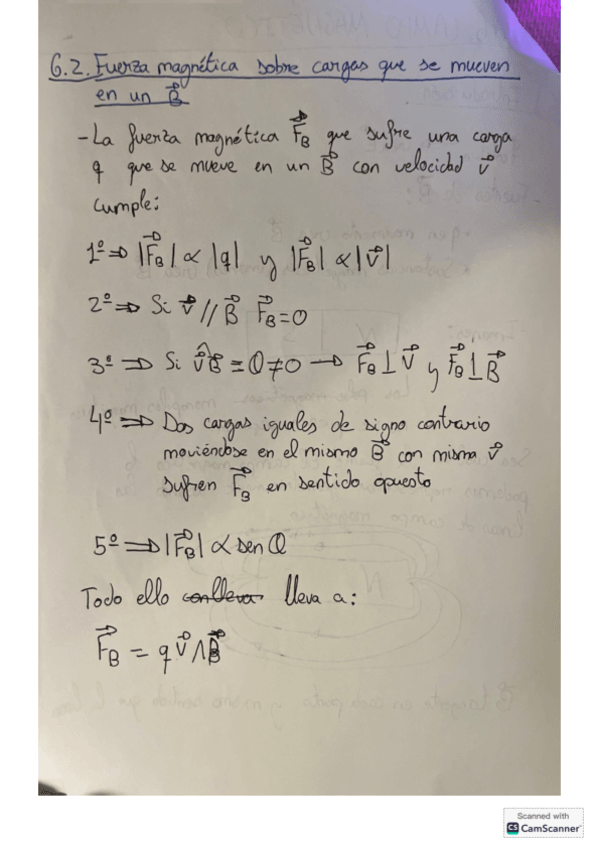 6.2. Fuerza magnética sobre cargas que se mueven
en un B⃗
-La fuerza magnética F⃗_B que sufre una carga
q que se mueve en un B⃗ con velocidad v⃗
cumple:
1º ⇒ |F⃗_B| ∝ |q| y |F⃗_B| ∝ |v⃗|
2º ⇒ Si v⃗ // B⃗ F⃗_B = 0
3º ⇒ Si v⃗^B⃗ = θ ≠ 0 → F⃗_B ⊥ v⃗ y F⃗_B ⊥ B⃗
4º ⇒ Dos cargas iguales de signo contrario
moviéndose en el mismo B⃗ con misma v⃗
sufren F⃗_B en sentido opuesto
5º ⇒ |F⃗_B| ∝ sen θ
Todo ello conlleva lleva a:
F⃗_B = q v⃗ ∧ B⃗
Scanned with
CS CamScanner